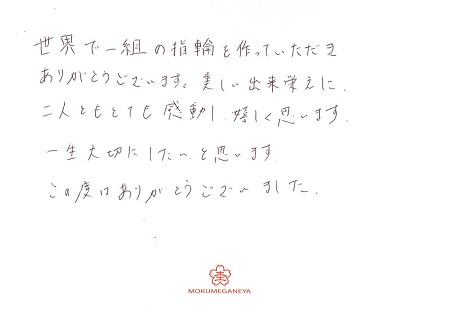 世界で一組の指輪を作っていただき
ありがとうございます。美しい出来栄えに、
二人ともとても感動し、嬉しく思います。
一生大切にしたいと思います。
この度はありがとうございました。
MOKUMEGANEYA